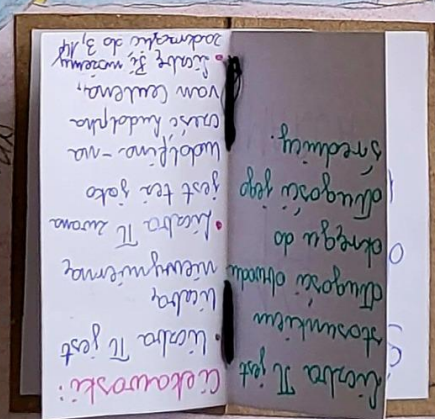 Liczba π jest
stosunkiem
długości obwodu
okręgu do
długości jego
średnicy.
Ciekawoski:
• liczba π jest
liczbą
niewymierną
• Liczba π zwana
jest też jako
ludolfina - na
cześć Ludolpha
van Ceulena,
• liczbę Pi możemy
zaokrąglić do 3,14